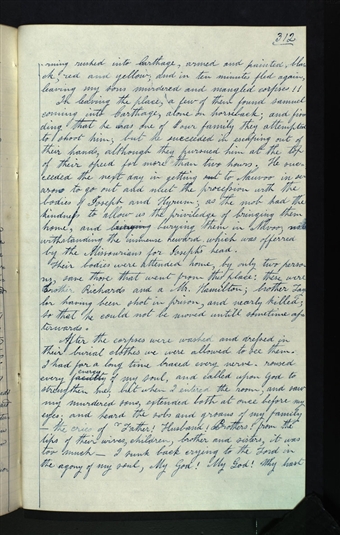 312
rushed into Carthage, armed and painted, black, red and yellow, and in ten minutes fled again,
leaving my sons murdered and mangled corpses!!
In leaving the place, a few of them found Samuel
coming into Carthage, alone on horseback; and
that he was one of our family, they attempted
to shoot him; but he succeeded in out of
their hands, although they pursued him at the top
of their speed for more than two hours. He
the next day in getting to Nauvoo in
to go out and meet the procession with the
bodies of Joseph and Hyrum; as the mob had the
kindness to allow us the priviledge of bringing them
home, and burying them in
withstanding the immense reward, which was offerred
by the Missourians for Joseph's head.
Their bodies were attended home, by only two
save those that went from this place: these were
Brother Richards and a Mr. Hamilton; brother
having been shot in prison, and nearly killed;
so that he could not be moved untill sometime
terwards.
After the corpses were washed and dressed in
their burial clothes we were allowed to see them.
I had for a long time braced every nerve, roused
every energy of my soul, and called upon God to
strengthen me; but when I entered the room, and saw
my murdered sons, extended both at once before my
eyes; and heard the sobs and groans of my family
the cries of "Father! Husband! Brothers!" from the
lips of their wives, children, brother and sisters, it was
too much— I sunk back crying to the Lord in
the agony of my soul, My God! My God! Why hast